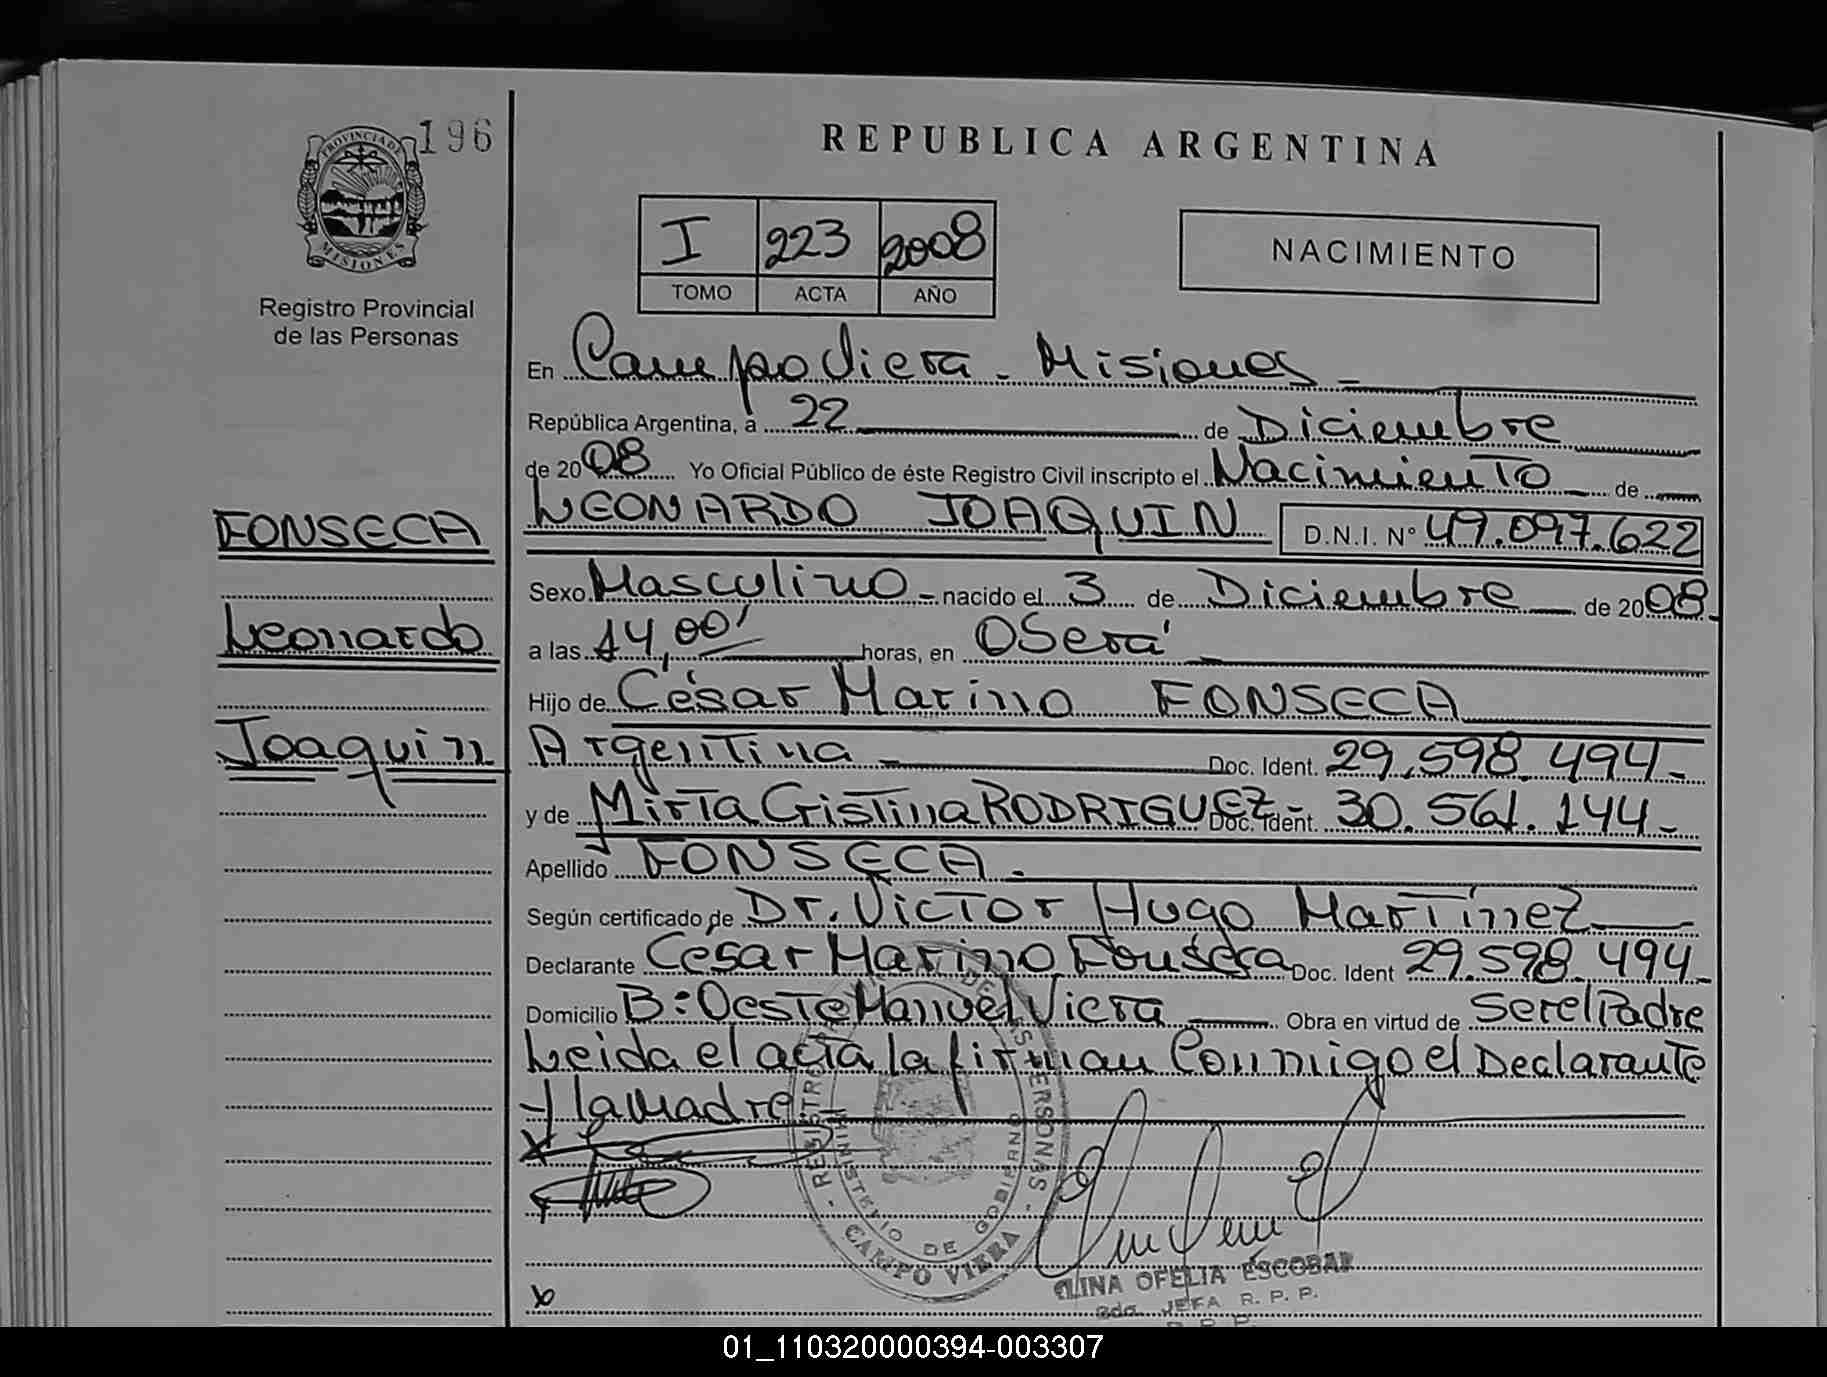 196
PROVINCIA DE
MISIONES
Registro Provincial
de las Personas
REPUBLICA ARGENTINA
I 223 2008
TOMO ACTA AÑO
NACIMIENTO
En Campo Viera - Misiones -
República Argentina, a 22 de Diciembre
de 2008 Yo Oficial Público de éste Registro Civil inscripto el Nacimiento de
LEONARDO JOAQUIN D.N.I. N° 49.097.622
FONSECA
Leonardo
Joaquin
Sexo Masculino - nacido el 3 de Diciembre de 2008.
a las 14,00' horas, en Oberá
Hijo de César Marino FONSECA
Argentina - Doc. Ident. 29.598.494-
y de Mirta Cristina RODRIGUEZ - Doc. Ident. 30.561.144-
Apellido FONSECA -
Según certificado de Dr. Victor Hugo Martínez
Declarante César Marino Fonseca Doc. Ident 29.598.494-
Domicilio B: Oeste Manuel Viera Obra en virtud de Ser el Padre
Leida el acta, la firman Conmigo el Declarante
y la Madre -
REGISTRO PROVINCIAL DE LAS PERSONAS
MINISTERIO DE GOBIERNO
CAMPO VIERA
ELINA OFELIA ESCOBAR
2da. JEFA R. P. P.
01_110320000394-003307